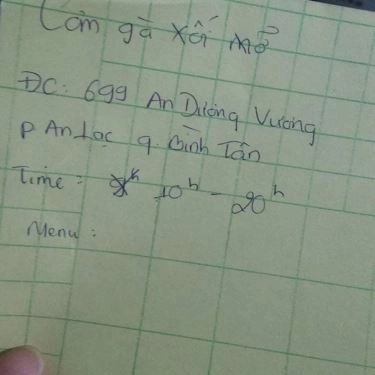 Cơm gà xối mỡ
ĐC: 699 An Dương Vương
P An Lạc q. Bình Tân
Time: 10h - 20h
Menu: